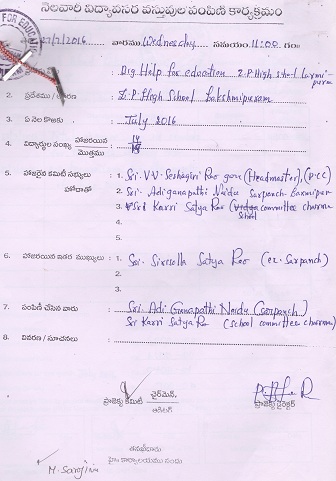 నెలవారి విద్యావసర వస్తువుల పంపిణి కార్యక్రమం
/7/2016 వారము Wednesday సమయం 11:00 గం
FOR EDUCA
Dig Help for education Z.P High School Laxmipuram
2. ప్రదేశము : Z.P High School Lakshmipuram
3. ఏ నెల కొరకు : July 2016
4. విద్యార్థుల సంఖ్య హాజరయిన / మొత్తము :
5. హాజరైన కమిటి సభ్యులు : 1. Sri. V.V. Seshagiri Rao garu (Headmaster), (P.CC)
హోదాతో 2. Sri. Adiganapathi Naidu Sarpanch Laxmipur
3. Sri Karri Satya Rao committee chairma
School
4.
5.
6. హాజరయిన ఇతర ముఖ్యులు : 1. Sri. Satya Rao (ex. Sarpanch)
2.
3.
7. పంపిణి చేసిన వారు : Sri. Adi Ganapathi Naidu (Sarpanch)
Sri Karri Satya Rao (School committee chairma)
8. వివరణ / సూచనలు :
ప్రాజెక్టు కమిటి ఛైర్మెన్, ప్రాజెక్టు డైరెక్టర్
ఆడిటర్
తనఖీదారు
హెచ్ కార్యాలయము నందు
M. Sarojini